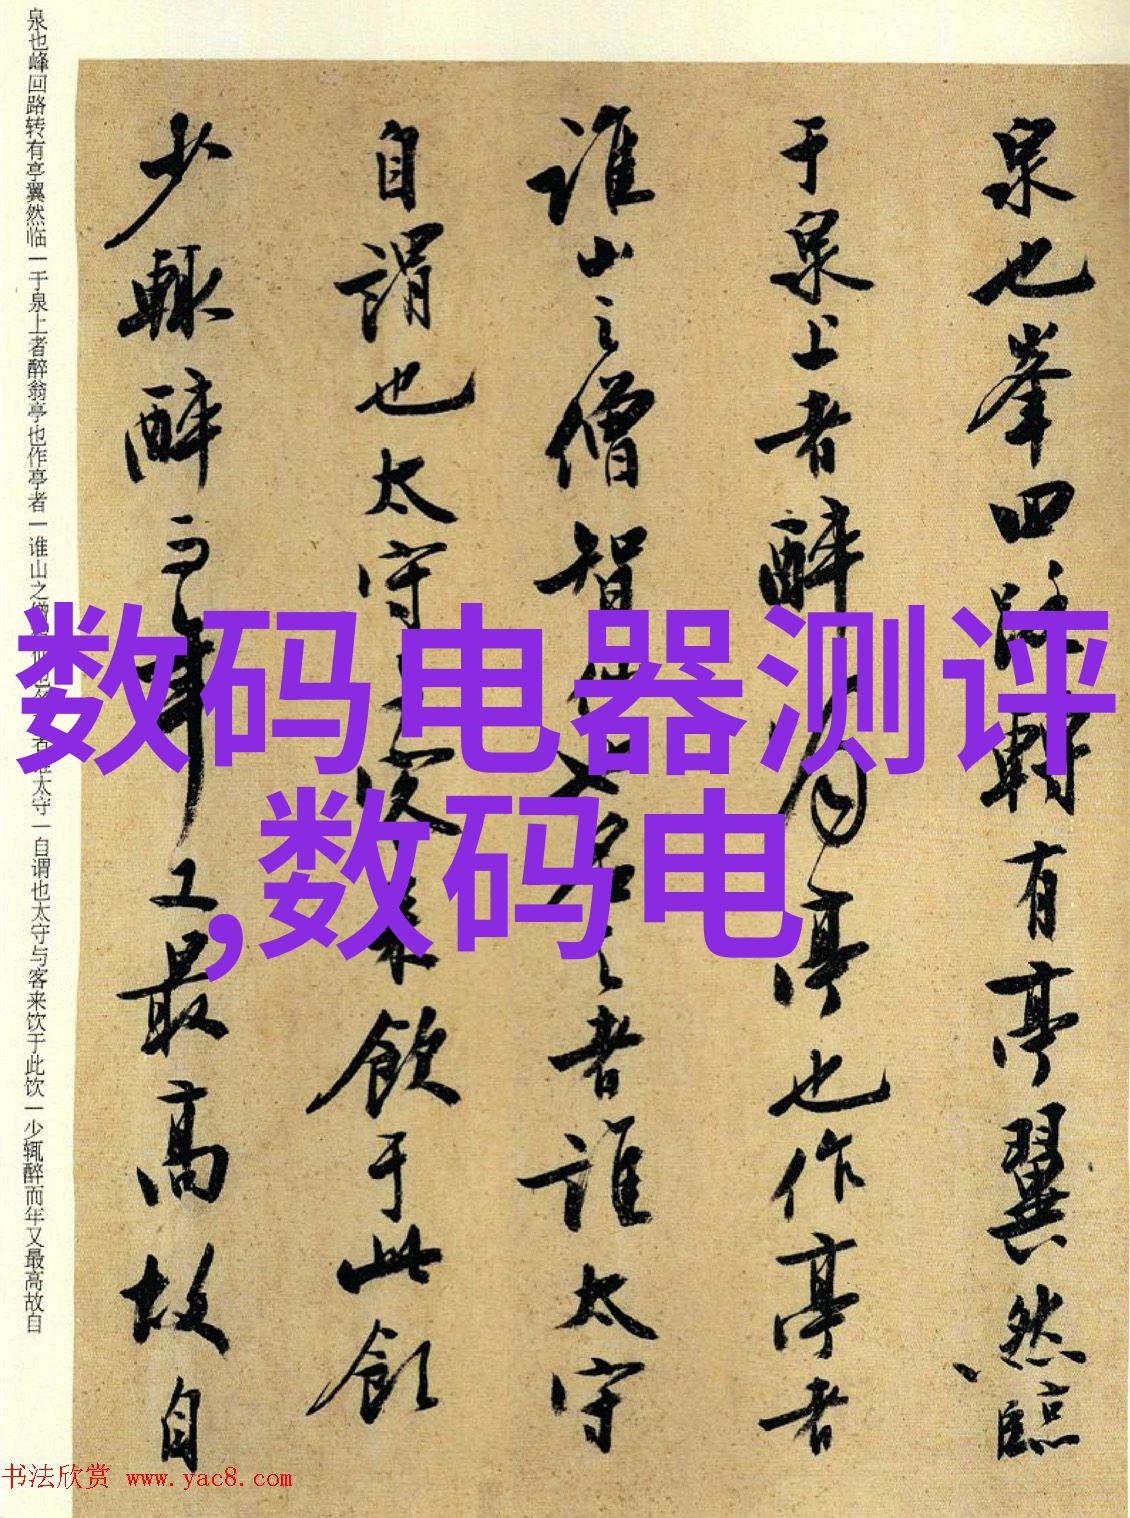 泉也峯回路轉有亭翼然臨
于泉上者醉翁亭也作亭者
誰山之僧智僊也名之者誰太守
自謂也太守与客來飲于此飲
少輒醉而年又最高故自
泉也峰回路转有亭翼然临一于泉上者醉翁亭也作亭者一谁山之僧
太守一自谓也太守与客来饮于此饮一少辄醉而年又最高故自
数码电器测评
,数码电
书法欣赏 www.yac8.com